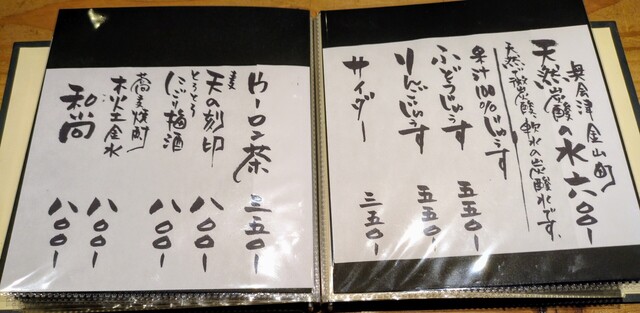 奥会津金山町
天然炭酸の水 六〇〇-
天然の微炭酸、軟水の炭酸水です。
果汁100%じゅうす
ぶどうじゅうす 五五〇-
りんごじゅうす 五五〇-
サイダー 三五〇-
ウーロン茶 三五〇-
麦
天の刻印 八〇〇-
とろとろ
にごり梅酒 八〇〇-
蕎麦焼酎
木火土金水 八〇〇-
和尚 八〇〇-